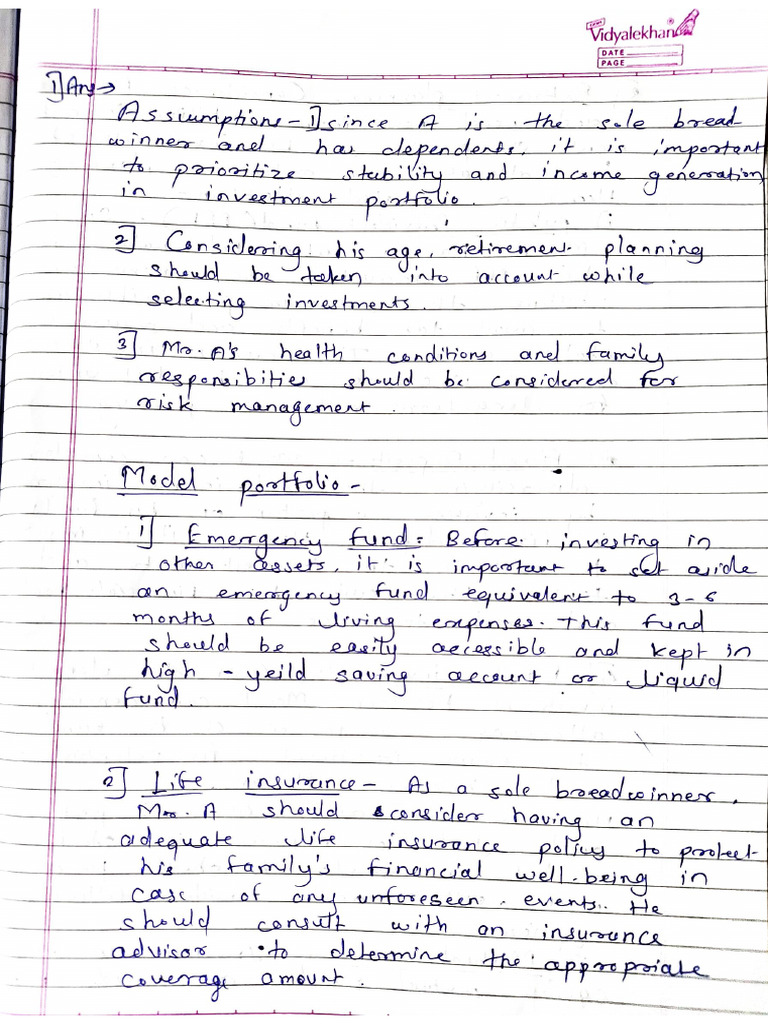 Vidyalekhan
DATE
PAGE
1] Ans →
Assiumptions - 1] since A is the sole bread
winner and has dependents, it is important
to prioritize stability and income generation
in investment portfolio.
2] Considering his age, retirement planning
should be taken into account while
selecting investments.
3] Mr. A's health conditions and family
responsibities should be considered for
risk management.
Model portfolio -
1] Emergency fund = Before investing in
other assets, it is important to set aside
an emergency fund equivalent to 3-6
months of living expenses. This fund
should be easily accessible and kept in
high - yeild saving account or liquid
fund.
2] Life insurance - As a sole breadwinner,
Mr. A should consider having an
adequate life insurance policy to protect
his family's financial well-being in
case of any unforeseen events. He
should consult with an insurance
advisor to determine the appropriate
coverage amount.